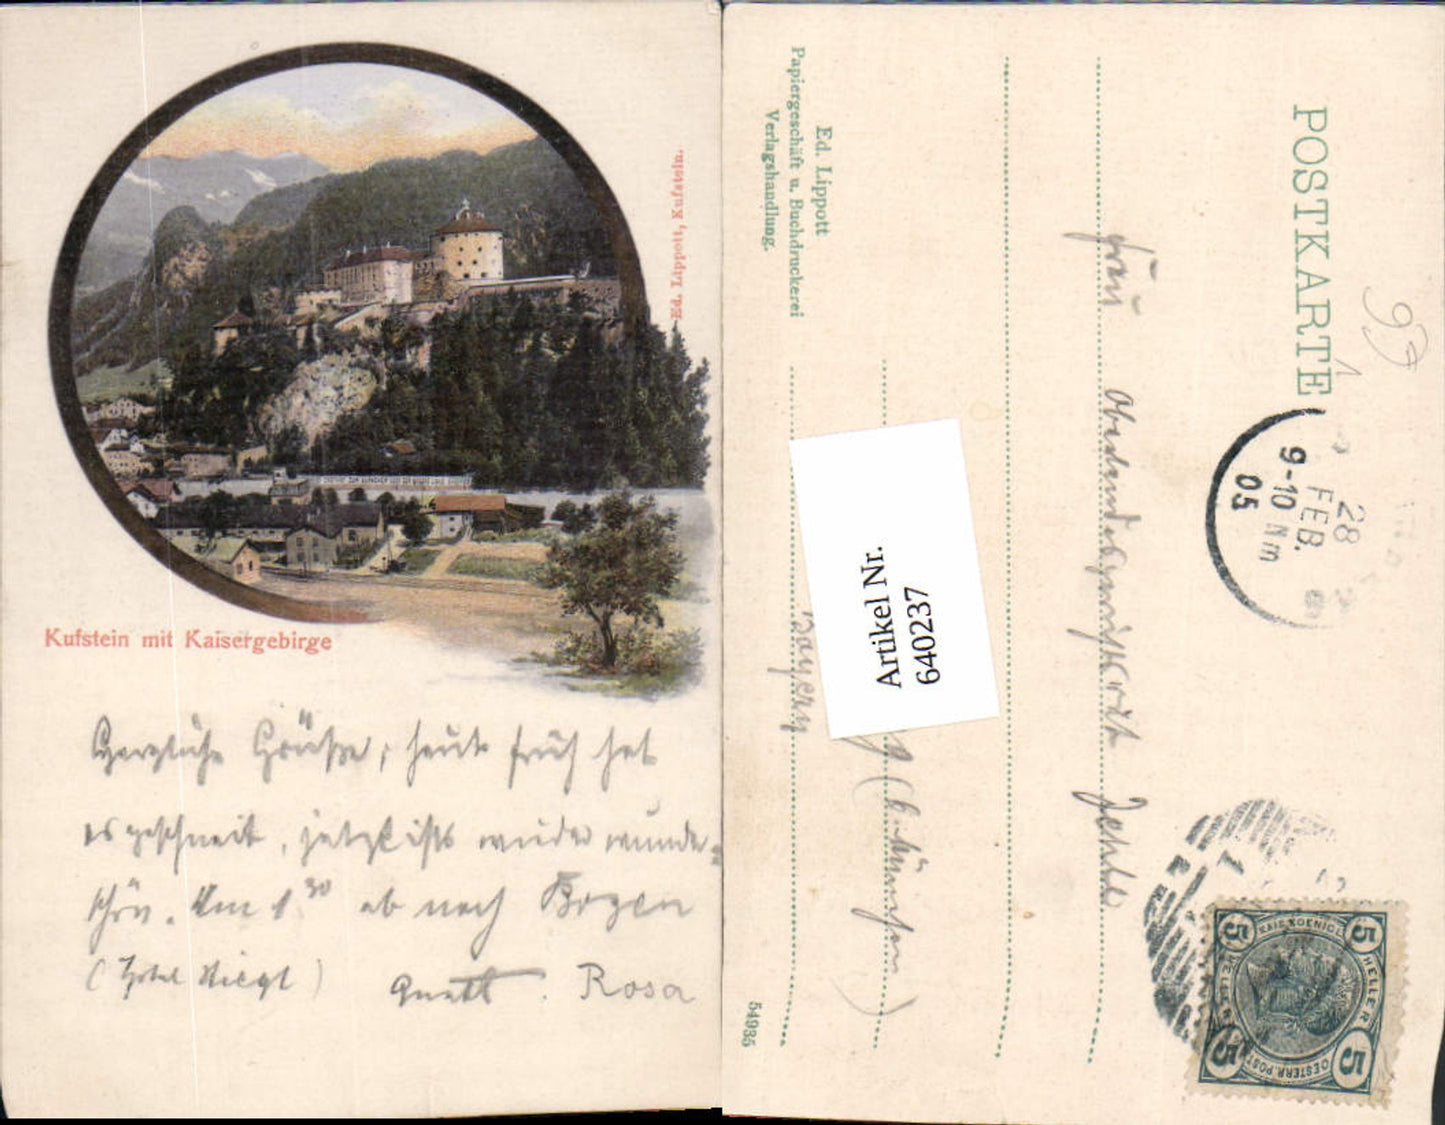 Ed. Lippott, Kufstein.
Kufstein mit Kaisergebirge
Herzliche Grüße, heute früh hat
es geschneit, jetzt ists wieder wunder-
schön. Um 1 30 ab nach Bozen
(Hotel ) Rosa
POSTKARTE
Ed. Lippott
Papiergeschäft u. Buchdruckerei
Verlagshandlung.
54935
Frau
(b. München)
Bayern
28
FEB.
9-10 Nm
05
5 5
KAIS. KOENIGL.
HELLER HELLER
OESTERR. POST
5 5
Artikel Nr.
640237